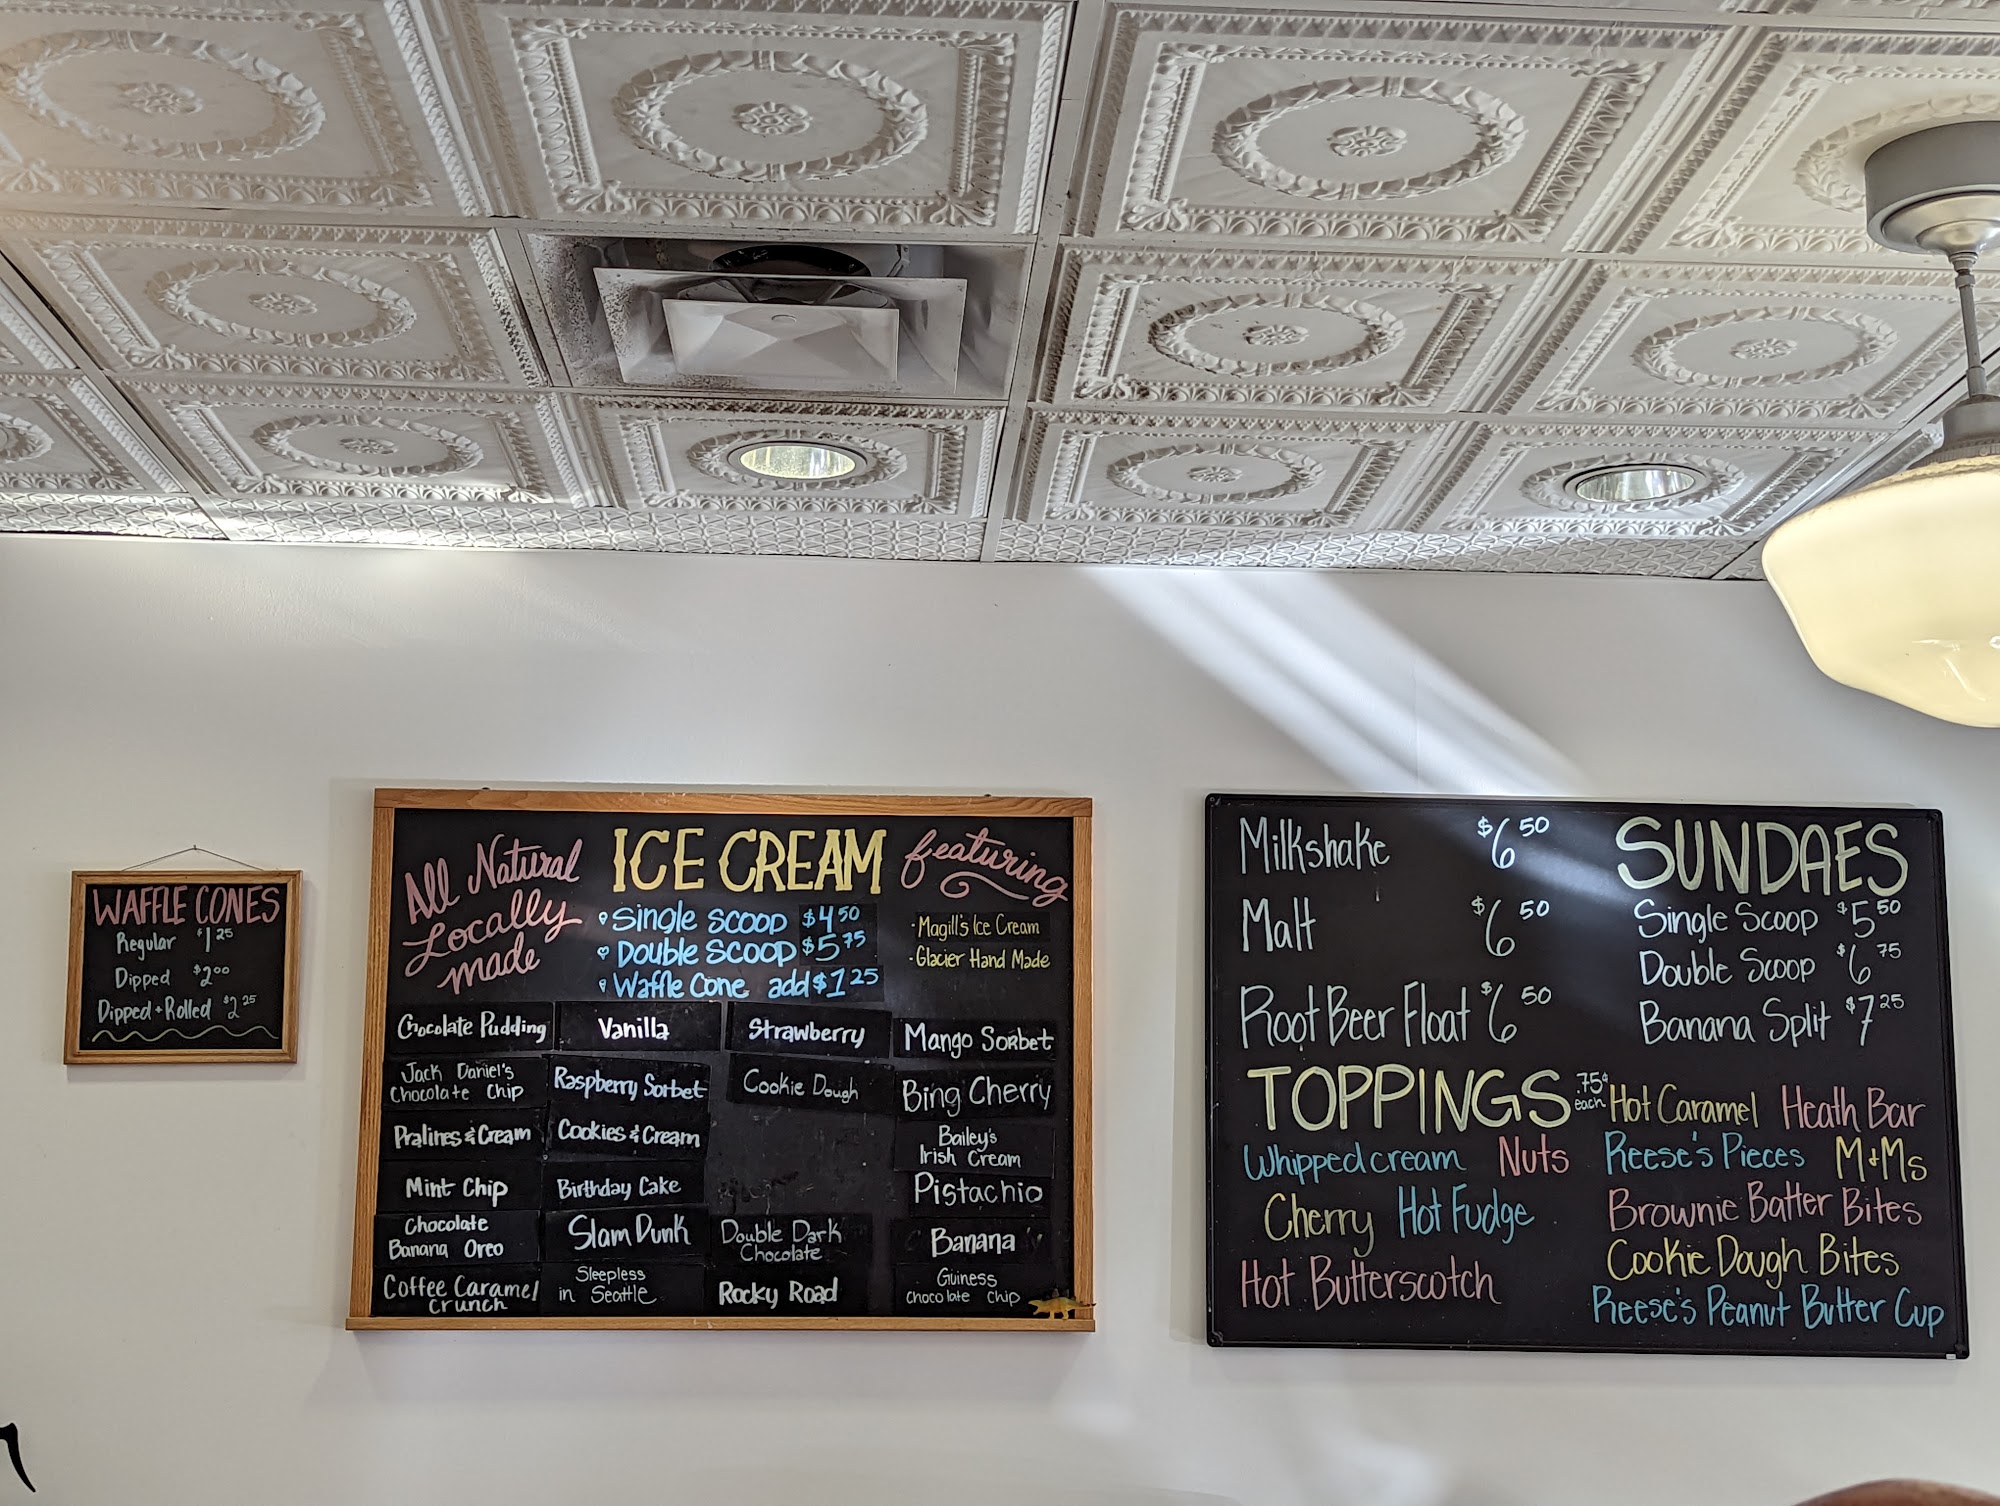 WAFFLE CONES
Regular $1.25
Dipped $2.00
Dipped + Rolled $2.25
All Natural
Locally
made
ICE CREAM
featuring
Single Scoop $4.50
Double Scoop $5.75
Waffle Cone add $1.25
Magill's Ice Cream
Glacier Hand Made
Chocolate Pudding
Jack Daniel's
Chocolate Chip
Pralines & Cream
Mint Chip
Chocolate
Banana Oreo
Coffee Caramel
Crunch
Vanilla
Raspberry Sorbet
Cookies & Cream
Birthday Cake
Slam Dunk
Sleepless
in Seattle
Strawberry
Cookie Dough
Double Dark
Chocolate
Rocky Road
Mango Sorbet
Bing Cherry
Bailey's
Irish Cream
Pistachio
Banana
Guiness
Chocolate Chip
Milkshake $6.50
Malt $6.50
Root Beer Float $6.50
SUNDAES
Single Scoop $5.50
Double Scoop $6.75
Banana Split $7.25
TOPPINGS .75¢
each
Whipped cream Nuts
Cherry Hot Fudge
Hot Butterscotch
Hot Caramel Heath Bar
Reese's Pieces M+Ms
Brownie Batter Bites
Cookie Dough Bites
Reese's Peanut Butter Cup